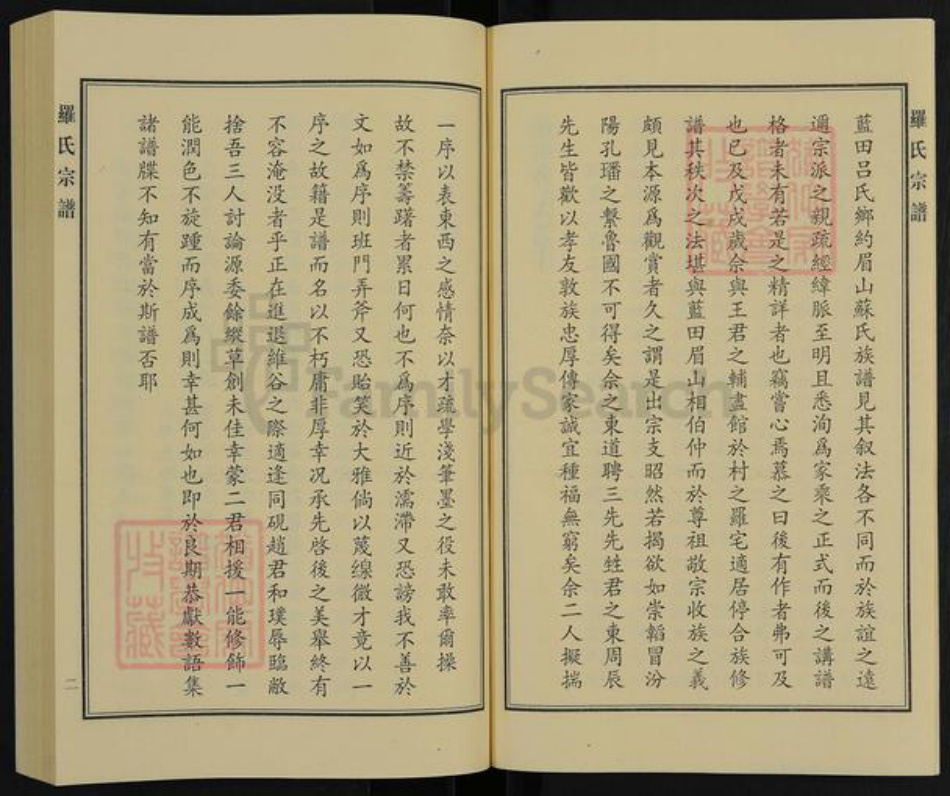 羅氏宗譜
藍田呂氏鄉約眉山蘇氏族譜見其叙法各不同而於族誼之遠
邇宗派之親疏經緯脈至明且悉洵爲家乘之正式而後之講譜
格者未有若是之精詳者也竊嘗心焉慕之曰後有作者弗可及
也已及戊戌歲佘與王君之輔盡館於村之羅宅適居停合族修
譜其秩次之法堪與藍田眉山相伯仲而於尊祖敬宗收族之義
頗見本源爲觀賞者久之謂是出宗支昭然若揭欲如崇韜冒汾
陽孔璠之繫魯國不可得矣佘之東道聘三先先甡君之東周辰
先生皆歡以孝友敦族忠厚傳家誠宜種福無窮矣余二人擬揣
一序以表東西之感情奈以才疏學淺筆墨之役未敢率爾操
故不禁籌躇者累日何也不爲序則近於濡滯又恐謗我不善於
文如爲序則班門弄斧又恐貽笑於大雅倘以蔑線微才竟以一
序之故籍是譜而名以不朽庸非厚幸况承先啓後之美舉終有
不容淹没者乎正在進退維谷之際適逢同硯趙君和璞辱臨敝
捨吾三人討論源委餘縱草創未佳幸蒙二君相援一能修飾一
能潤色不旋踵而序成爲則幸甚何如也即於良期恭獻數語集
諸譜牒不知有當於斯譜否耶
羅氏宗譜
二
FamilySearch